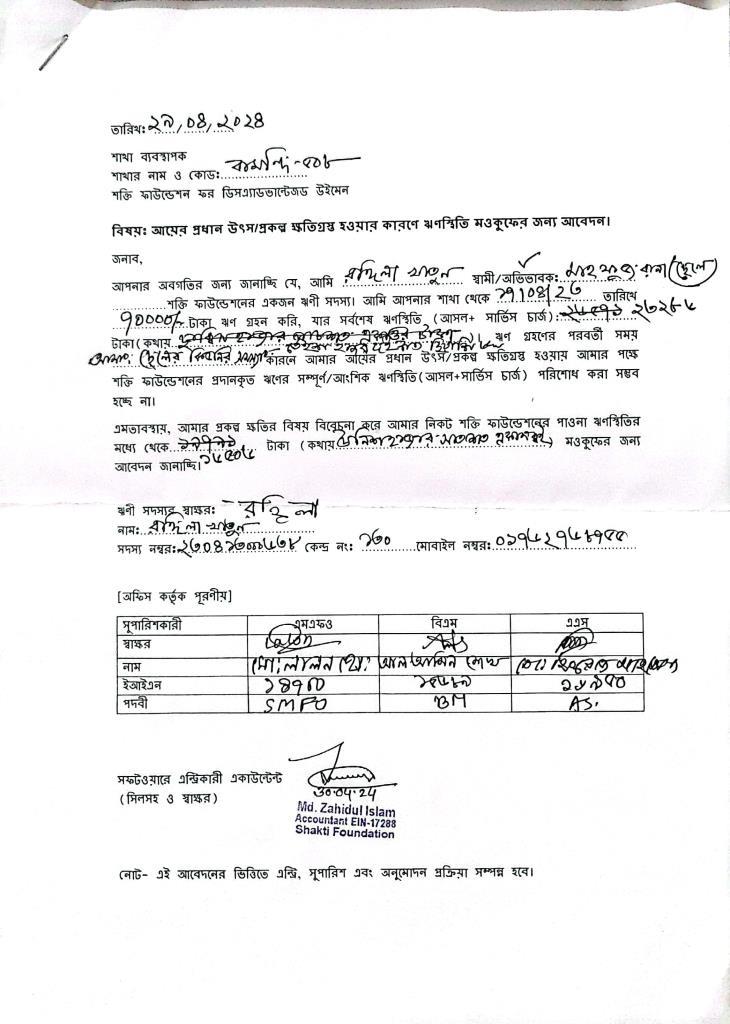 তারিখ: ২৯/০৪/২০২৪
শাখা ব্যবস্থাপক
শাখার নাম ও কোড: বামন্দি-৫০৮
শক্তি ফাউন্ডেশন ফর ডিসএ্যাডভান্টেজড উইমেন
বিষয়: আয়ের প্রধান উৎস/প্রকল্প ক্ষতিগ্রস্থ হওয়ার কারণে ঋণস্থিতি মওকুফের জন্য আবেদন।
জনাব,
আপনার অবগতির জন্য জানাচ্ছি যে, আমি খাতুন স্বামী/অভিভাবক: রানা (ছেলে)
শক্তি ফাউন্ডেশনের একজন ঋণী সদস্য। আমি আপনার শাখা থেকে তারিখে
৭০০০০/- টাকা ঋণ গ্রহন করি, যার সর্বশেষ ঋণস্থিতি (আসল+ সার্ভিস চার্জ):
টাকা (কথায় ঋণ গ্রহণের পরবর্তী সময়
ছেলের কারনে আমার আয়ের প্রধান উৎস/প্রকল্প ক্ষতিগ্রস্ত হওয়ায় আমার পক্ষে
শক্তি ফাউন্ডেশনের প্রদানকৃত ঋণের সম্পূর্ণ/আংশিক ঋণস্থিতি(আসল+সার্ভিস চার্জ) পরিশোধ করা সম্ভব
হচ্ছে না।
এমতাবস্থায়, আমার প্রকল্প ক্ষতির বিষয় বিবেচনা করে আমার নিকট শক্তি ফাউন্ডেশনের পাওনা ঋণস্থিতির
মধ্যে থেকে টাকা (কথায় ) মওকুফের জন্য
আবেদন জানাচ্ছি।
ঋণী সদস্যর স্বাক্ষর:
নাম: খাতুন
সদস্য নম্বর: কেন্দ্র নং: ১৬০ মোবাইল নম্বর:
[অফিস কর্তৃক পূরণীয়]
সুপারিশকারী এমএফও বিএম এএস
স্বাক্ষর
নাম মোঃ লালন মোঃ আল আমিন শেখ
ইআইএন
পদবী SMFO BM AS.
সফটওয়ারে এন্ট্রিকারী একাউন্টেন্ট
(সিলসহ ও স্বাক্ষর)
30.04.24
Md. Zahidul Islam
Accountant EIN-17288
Shakti Foundation
নোট- এই আবেদনের ভিত্তিতে এন্ট্রি, সুপারিশ এবং অনুমোদন প্রক্রিয়া সম্পন্ন হবে।